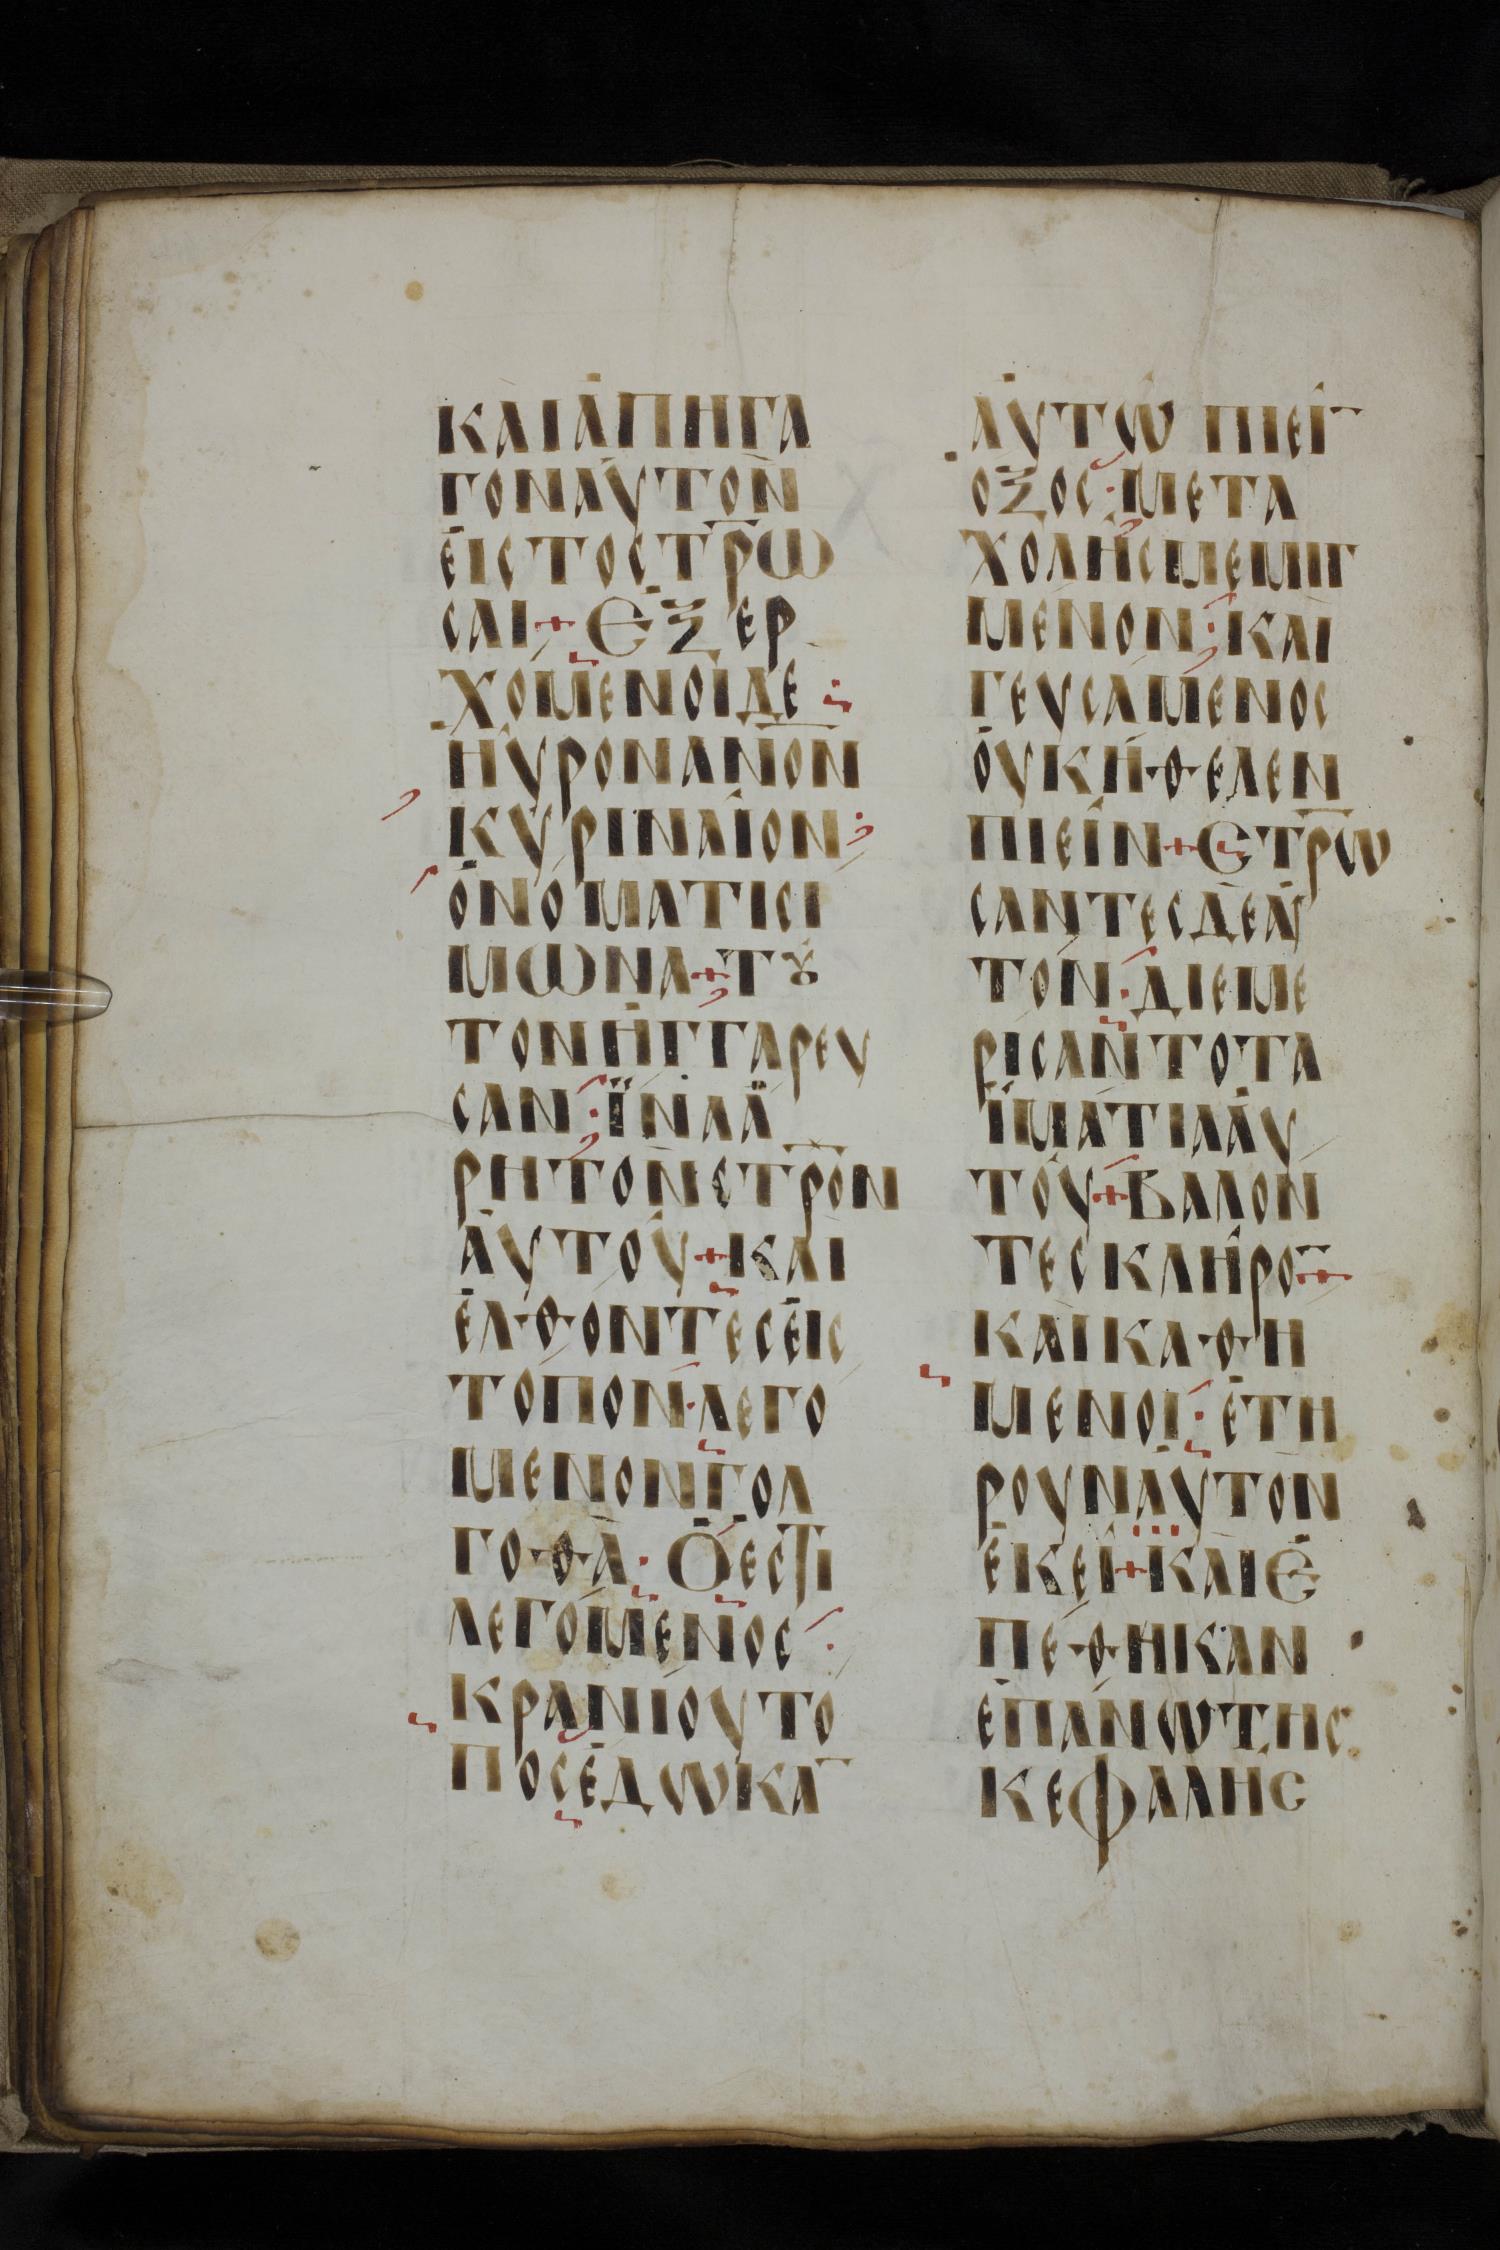 ΚΑΙἈΠΗΓΑ
ΓΟΝΑΥΤΟΝ
ἘΙΣΤΟΣΤΡ̅Ω
ΣΑΙ+ΕΞΕΡ
ΧΟΜΕΝΟΙΔΕ:
ΗΥΡΟΝΑΝΟ̅Ν
ΚΥΡΙΝΑΙΟΝ:
ὈΝΟΜΑΤΙΣΙ
ΜΩΝΑ+ΤȢ
ΤΟΝΗΓΓΑΡΕΥ
ΣΑΝ:ΪΝΑΑ
ΡΗΤΟΝΣΤΡ̅ΟΝ
ἈΥΤΟΥ+ΚΑΙ
ἘΛΘΟΝΤΕΣἘΙΣ
ΤΟΠΟΝ·ΛΕΓΟ
ΜΕΝΟΝΓΟΛ
ΓΟΘΑ·ὍΕΣΤΙ
ΛΕΓΟΜΕΝΟΣ·
ΚΡΑΝΙΟΥΤΟ
ΠΟΣἘΔΩΚΑ̅
ἈΥΤΩ ΠΙΕΙ̅
ΟΞΟΣ·ΜΕΤΑ
ΧΟΛΗΣΜΕΜΙΓ
ΜΕΝΟΝ:ΚΑΙ
ΓΕΥΣΑΜΕΝΟΣ
ὈΥΚΗΘΕΛΕΝ
ΠΙΕΙΝ+ΕΣΤΡ̅Ω
ΣΑΝΤΕΣΔΕΑΥ
ΤΟΝ·ΔΙΕΜΕ
ΡΙΣΑΝΤΟΤΑ
ΪΜΑΤΙΑΑΥ
ΤΟΥ+ΒΑΛΟΝ
ΤΕΣΚΛΗΡΟ̅+
ΚΑΙΚΑΘΗ
ΜΕΝΟΙ:ἘΤΗ
ΡΟΥΝἈΥΤΟΝ
ἘΚΕΙ+ΚΑΙἘ
ΠΕΘΗΚΑΝ
ἘΠΑΝΩΤΗΣ
ΚΕΦΑΛΗΣ